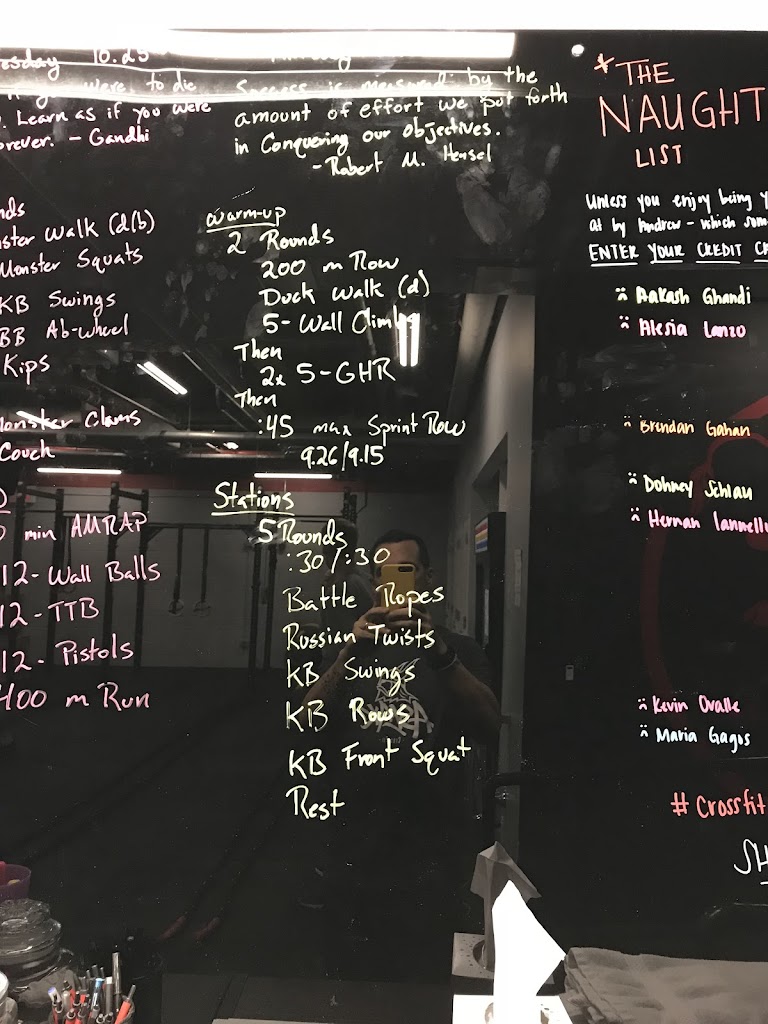 10.25
were to die
Learn as if you were
- Gandhi
Monster Squats
KB Swings
BB Ab-wheel
Kips
Monster Clams
Couch
min AMRAP
12- Wall Balls
12- TTB
12- Pistols
400 m Run
Success is measured by the
amount of effort we put forth
in Conquering our objectives.
- Robert M. Hensel
Warm-up
2 Rounds
200 m Row
Duck Walk (d)
5- Wall Climbs
Then
2x 5-GHR
Then
:45 max Sprint Row
9.26/9.15
Stations
5 Rounds
:30/:30
Battle Ropes
Russian Twists
KB Swings
KB Rows
KB Front Squat
Rest
*THE
NAUGHT
LIST
Unless you enjoy being
At by Andrew - which
ENTER YOUR CREDIT
Aakash Ghandi
Alesia Lanzo
Brendan Gahan
Dohney Schlau
Hernan Iannello
Kevin Ovalle
Maria Gagos
#Crossfit